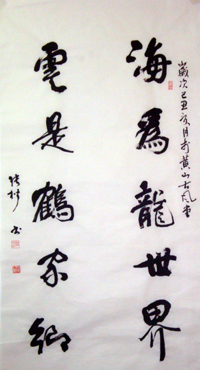 歲次己丑月於黃山古風堂
海為龍世界
雲是鶴家鄉
書